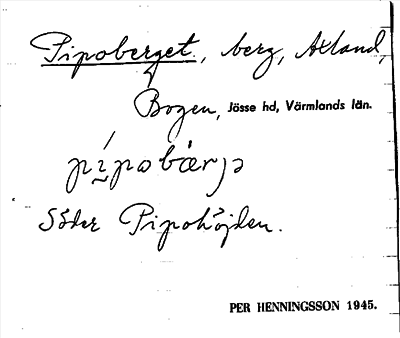 Pipoberget, berg, Axland,
Bogen, Jösse hd, Värmlands län.
pìpobærjə
Söder Pipohöjden.
PER HENNINGSSON 1945.